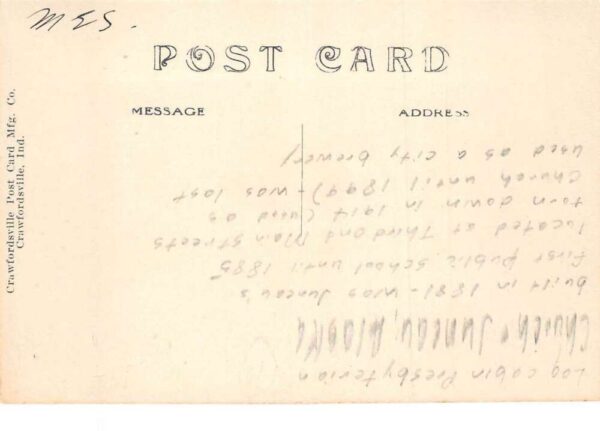 MES.
POST CARD
MESSAGE
ADDRESS
Crawfordsville Post Card Mfg. Co.
Crawfordsville, Ind.
Log cabin Presbyterian
Church, Juneau, Alaska
built in 1881 - was Juneau's
first public school until 1885
located at Third and Main streets
torn down in 1914 (used as
church until 1899) - was last
used as a city brewery